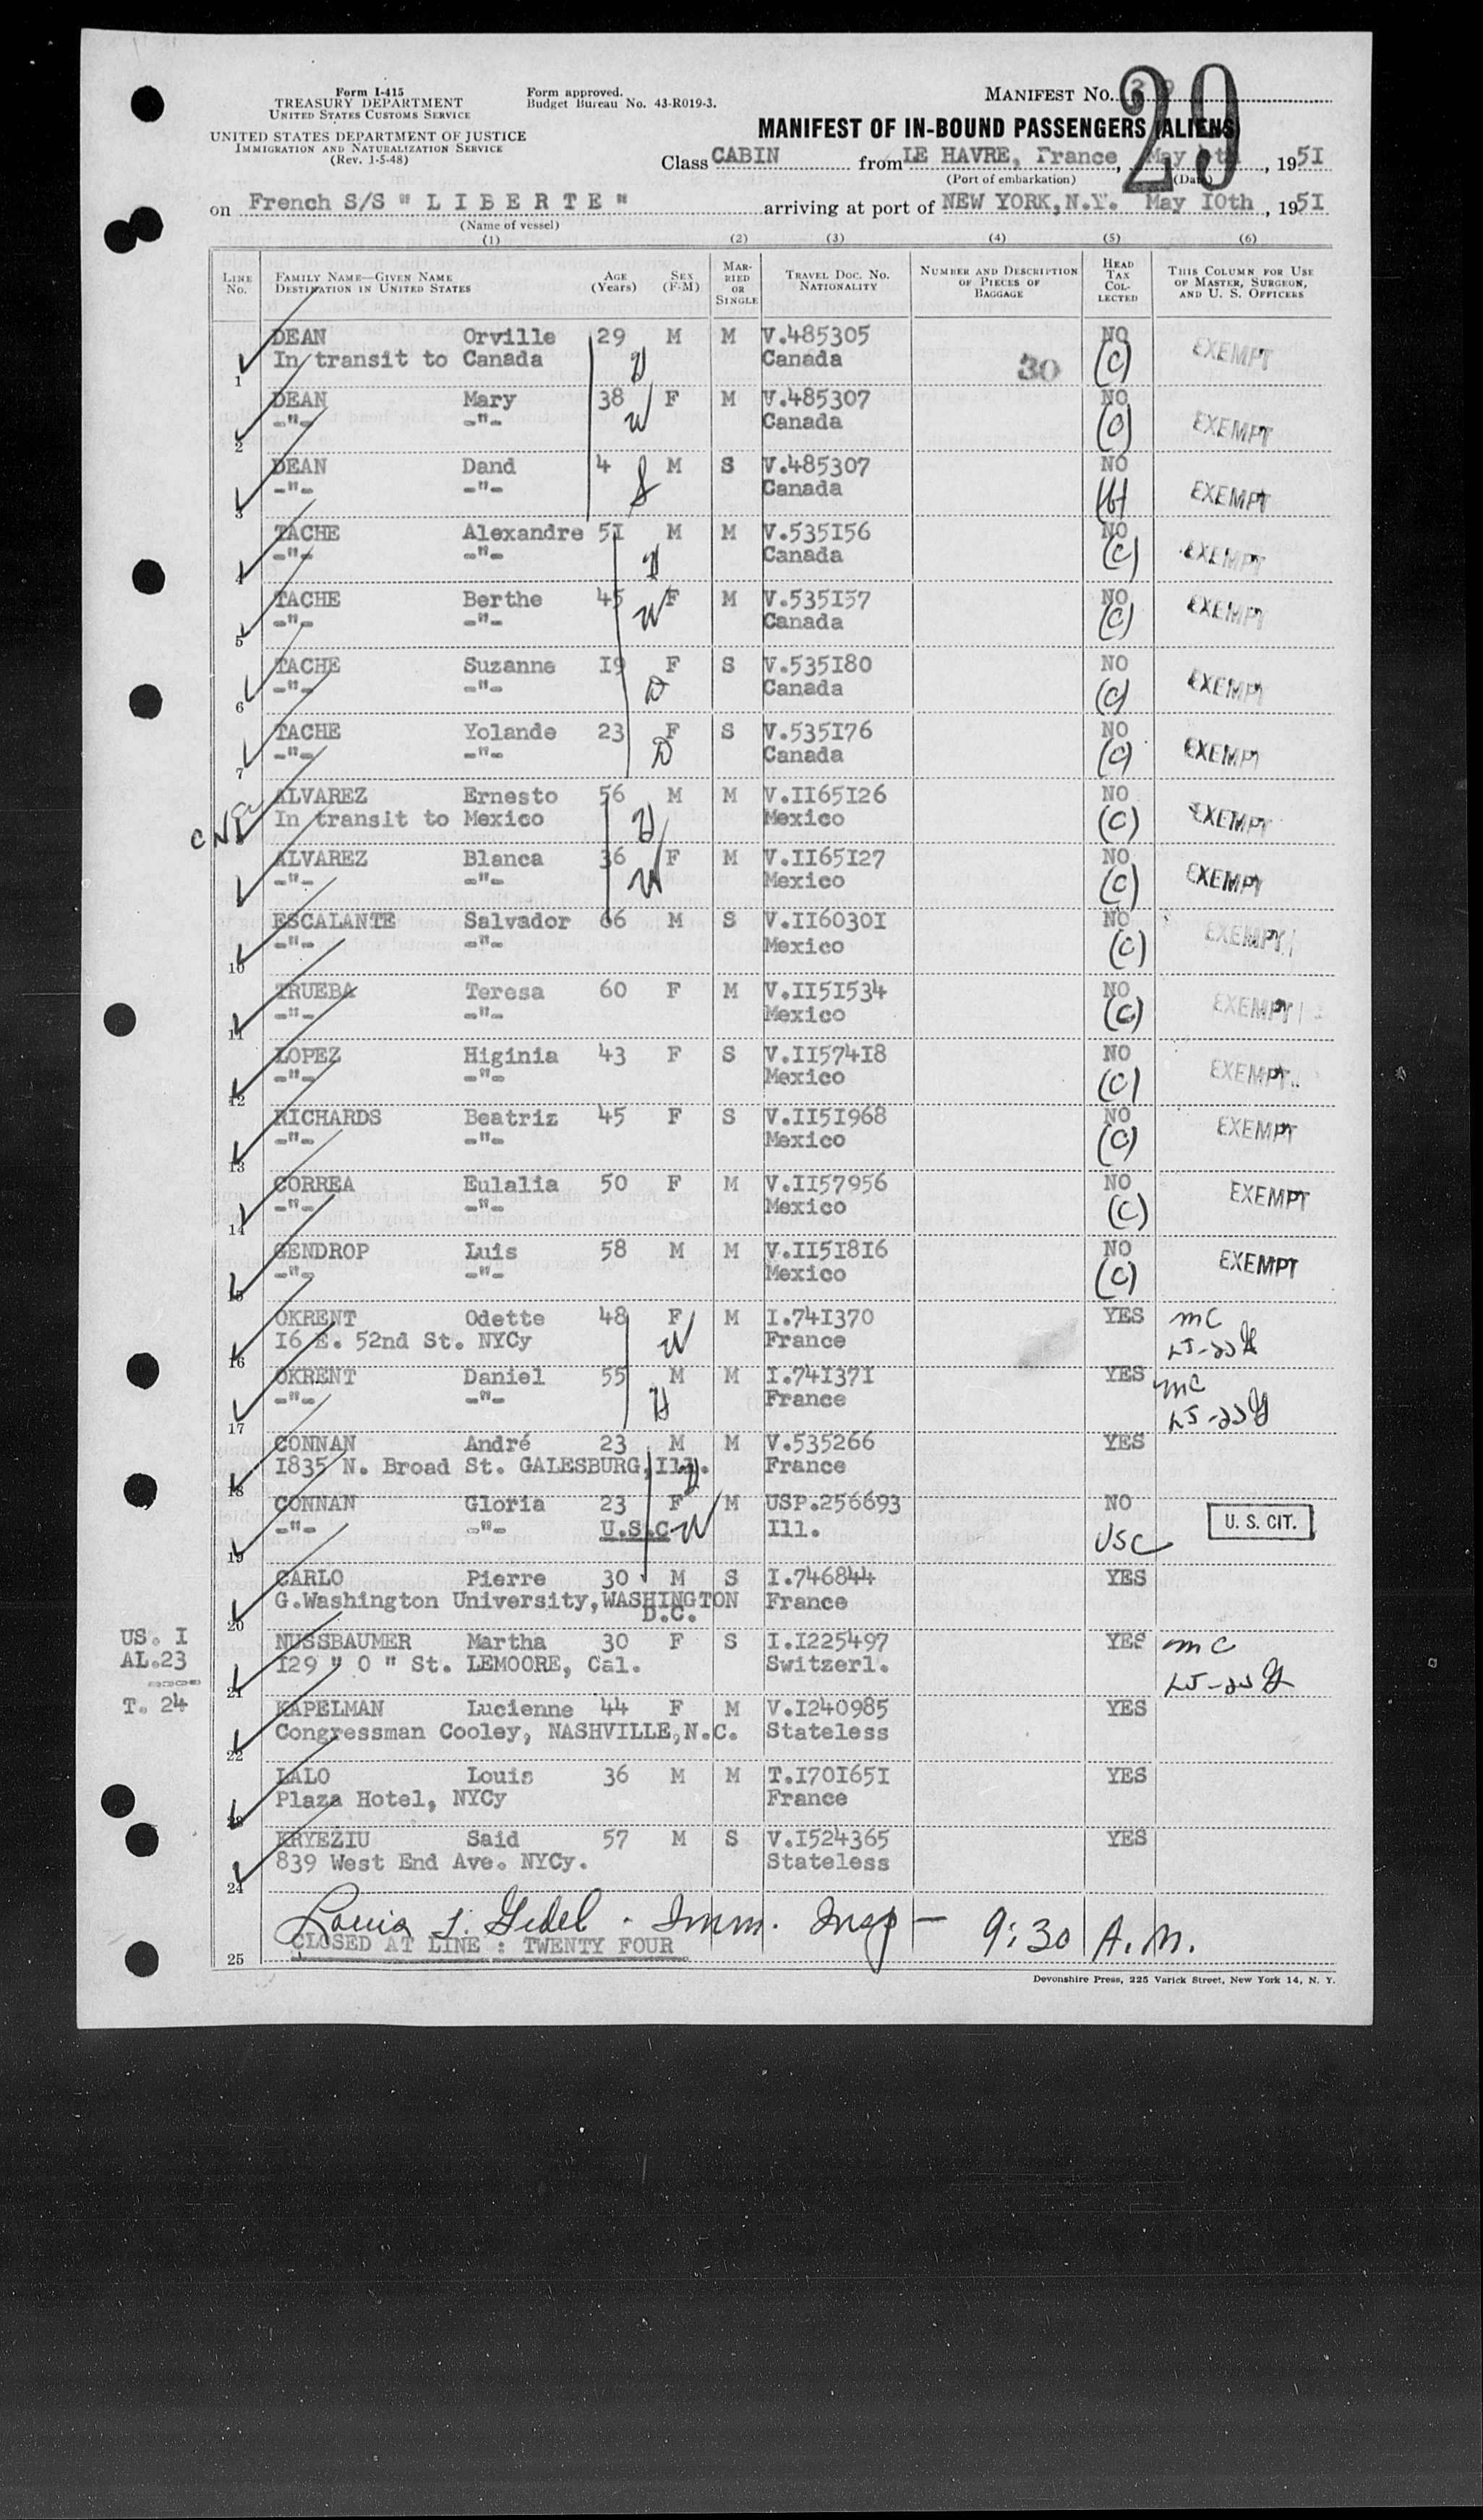 Form I-415
TREASURY DEPARTMENT
UNITED STATES CUSTOMS SERVICE
UNITED STATES DEPARTMENT OF JUSTICE
IMMIGRATION AND NATURALIZATION SERVICE
(Rev. 1-5-48)
Form approved.
Budget Bureau No. 43-R019-3.
MANIFEST NO.
29
MANIFEST OF IN-BOUND PASSENGERS (ALIENS)
Class CABIN from LE HAVRE, France, May , 1951
(Port of embarkation) (Date)
on French S/S " L I B E R T E " arriving at port of NEW YORK, N.Y. May 10th , 1951
(Name of vessel)
(1) (2) (3) (4) (5) (6)
LINE NO. FAMILY NAME—GIVEN NAME DESTINATION IN UNITED STATES AGE (Years) SEX (F-M) MARRIED OR SINGLE TRAVEL DOC. NO. NATIONALITY NUMBER AND DESCRIPTION OF PIECES OF BAGGAGE HEAD TAX COLLECTED THIS COLUMN FOR USE OF MASTER, SURGEON, AND U. S. OFFICERS
DEAN Orville 29 M M V.485305 NO EXEMPT
1 In transit to Canada Canada 30 (C)
DEAN Mary 38 W F M V.485307 NO
2 -"- -"- Canada (C) EXEMPT
DEAN Dand 4 M S V.485307 NO
3 -"- -"- Canada (b) EXEMPT
TACHE Alexandre 51 M M V.535156 NO
4 -"- -"- Canada (C) EXEMPT
TACHE Berthe 45 W F M V.535157 NO
5 -"- -"- Canada (C) EXEMPT
TACHE Suzanne 19 F S V.535180 NO
6 -"- -"- D Canada (C) EXEMPT
TACHE Yolande 23 F S V.535176 NO
7 -"- -"- D Canada (C) EXEMPT
ALVAREZ Ernesto 56 M M V.1165126 NO
In transit to Mexico H Mexico (C) EXEMPT
ALVAREZ Blanca 36 F M V.1165127 NO
-"- -"- W Mexico (C) EXEMPT
ESCALANTE Salvador 66 M S V.1160301 NO
10 -"- -"- Mexico (C) EXEMPT
TRUEBA Teresa 60 F M V.1151534 NO
11 -"- -"- Mexico (C) EXEMPT
LOPEZ Higinia 43 F S V.1157418 NO
12 -"- -"- Mexico (C) EXEMPT
RICHARDS Beatriz 45 F S V.1151968 NO
13 -"- -"- Mexico (C) EXEMPT
CORREA Eulalia 50 F M V.1157956 NO
14 -"- -"- Mexico (C) EXEMPT
GENDROP Luis 58 M M V.1151816 NO
15 -"- -"- Mexico (C) EXEMPT
OKRENT Odette 48 F M I.741370 YES mc
16 16 E. 52nd St. NYCy W France
OKRENT Daniel 55 M M I.741371 YES mc
17 -"- -"- H France
CONNAN André 23 M M V.535266 YES
18 1835 N. Broad St. GALESBURG, Ill. France
CONNAN Gloria 23 F M USP.256693 NO U. S. CIT.
19 -"- -"- U.S.C W Ill. USC
CARLO Pierre 30 M S I.746844 YES
20 G.Washington University, WASHINGTON D.C. France
US. I
AL.23
T. 24
NUSSBAUMER Martha 30 F S I.1225497 YES mc
21 129 " O " St. LEMOORE, Cal. Switzerl.
KAPELMAN Lucienne 44 F M V.1240985 YES
22 Congressman Cooley, NASHVILLE, N.C. Stateless
LALO Louis 36 M M T.1701651 YES
23 Plaza Hotel, NYCy France
KRYEZIU Said 57 M S V.1524365 YES
24 839 West End Ave. NYCy. Stateless
Louis Imm. Insp — 9:30 A.M.
25 CLOSED AT LINE : TWENTY FOUR
Devonshire Press, 225 Varick Street, New York 14, N. Y.